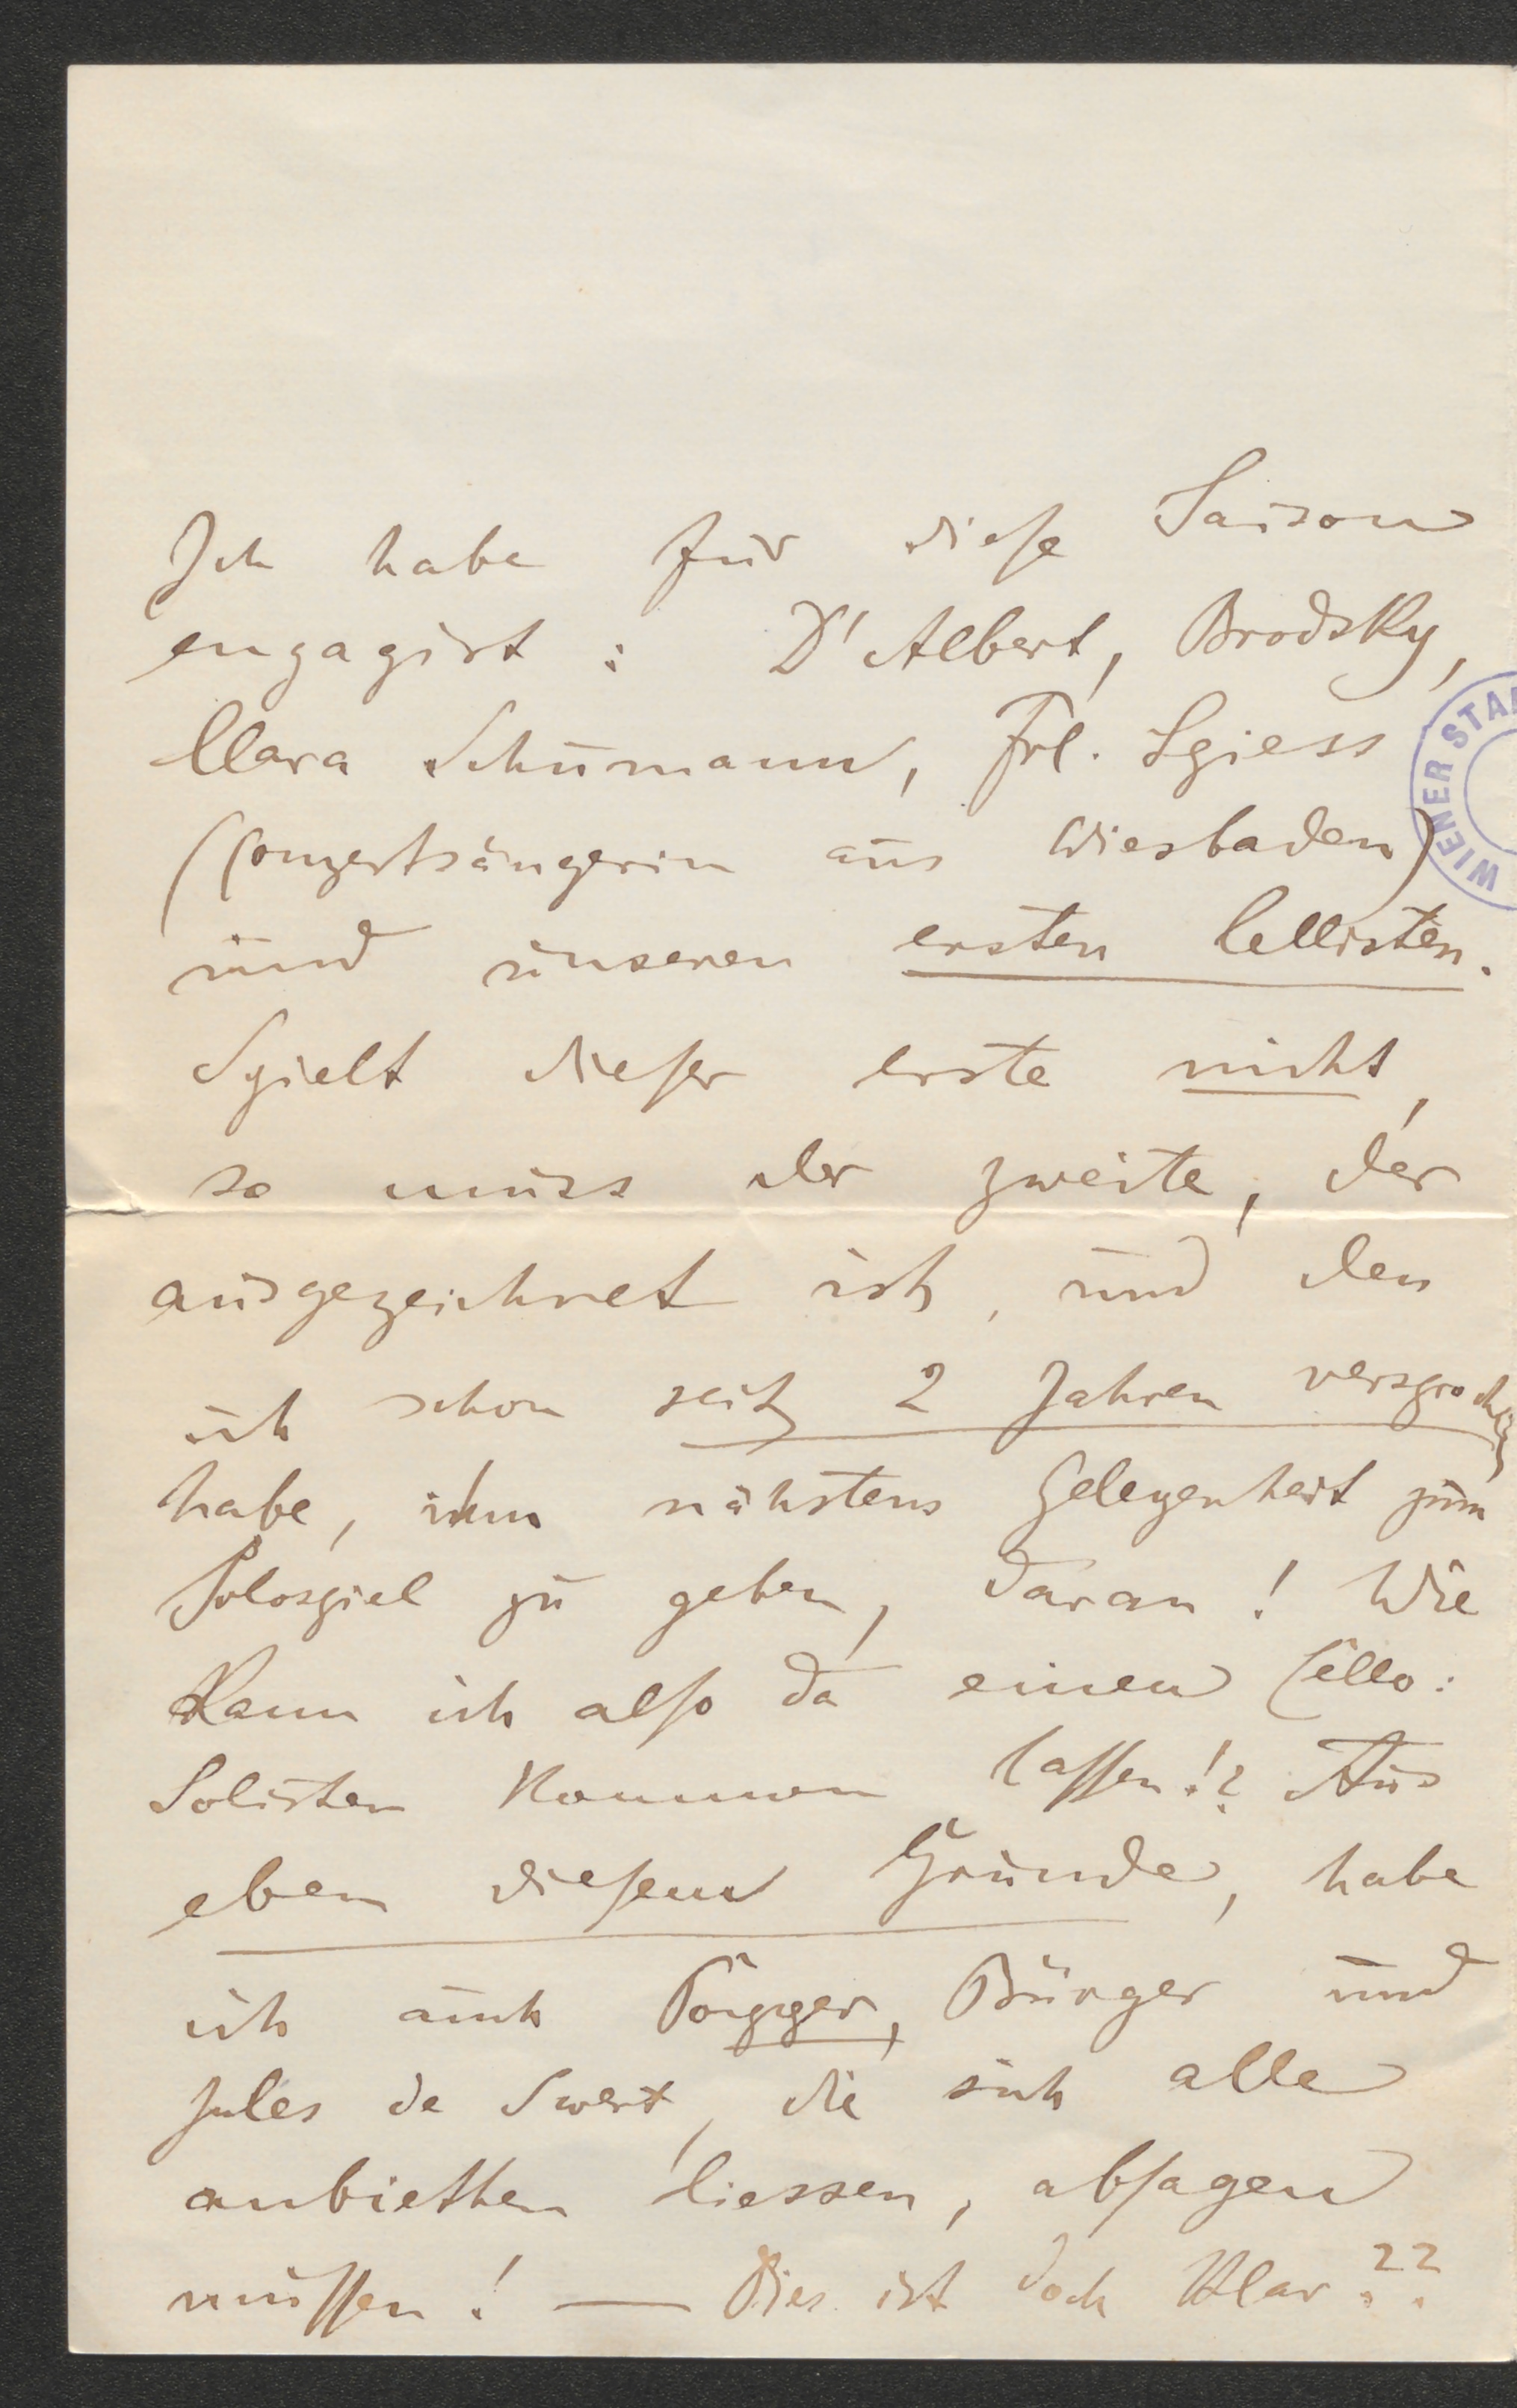 Ich habe für diese Saison
engagirt: D'Albert, Brodsky,
Clara Schumann, Frl. Spiess
(Conzertsängerin aus Wiesbaden)
und unseren ersten Cellisten.
Spielt dieser erste nicht,
so muss der zweite, der
ausgezeichnet ist, und den
ich schon seit 2 Jahren versprochen
habe, ihm nähstens Gelegenheit zum
Solospiel zu geben, daran! Wie
kann ich also da einen Cello:
Solisten kommen lassen!? Aus
eben diesem Grunde, habe
ich auch Popper, Bürger und
Jules de Swert, die sich alle
anbiethen liessen, absagen
müssen! — Dies ist doch klar??
WIENER STA